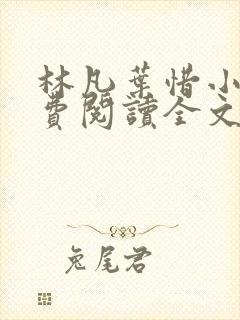 林凡葉惜小
費閱讀全文
兔尾君